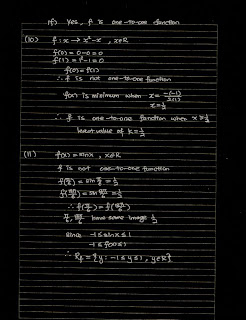 If yes, f is one-to-one function
(10) f : x → x² - x , x∈R
f(0) = 0 - 0 = 0
f(1) = 1² - 1 = 0
f(0) = f(1)
∴ f is not one-to-one function
f(x) is minimum when x = -(-1)/2(1)
x = 1/2
∴ f is one-to-one function when x ≥ 1/2
least value of k = 1/2
(11) f(x) = sin x , x∈R
f is not one-to-one function
f(π/6) = sin π/6 = 1/2
f(5π/6) = sin 5π/6 = 1/2
∴ f(π/6) = f(5π/6)
π/6, 5π/6 have same image 1/2
since -1 ≤ sin x ≤ 1
-1 ≤ f(x) ≤ 1
∴ R_f = {y : -1 ≤ y ≤ 1 , y∈R}